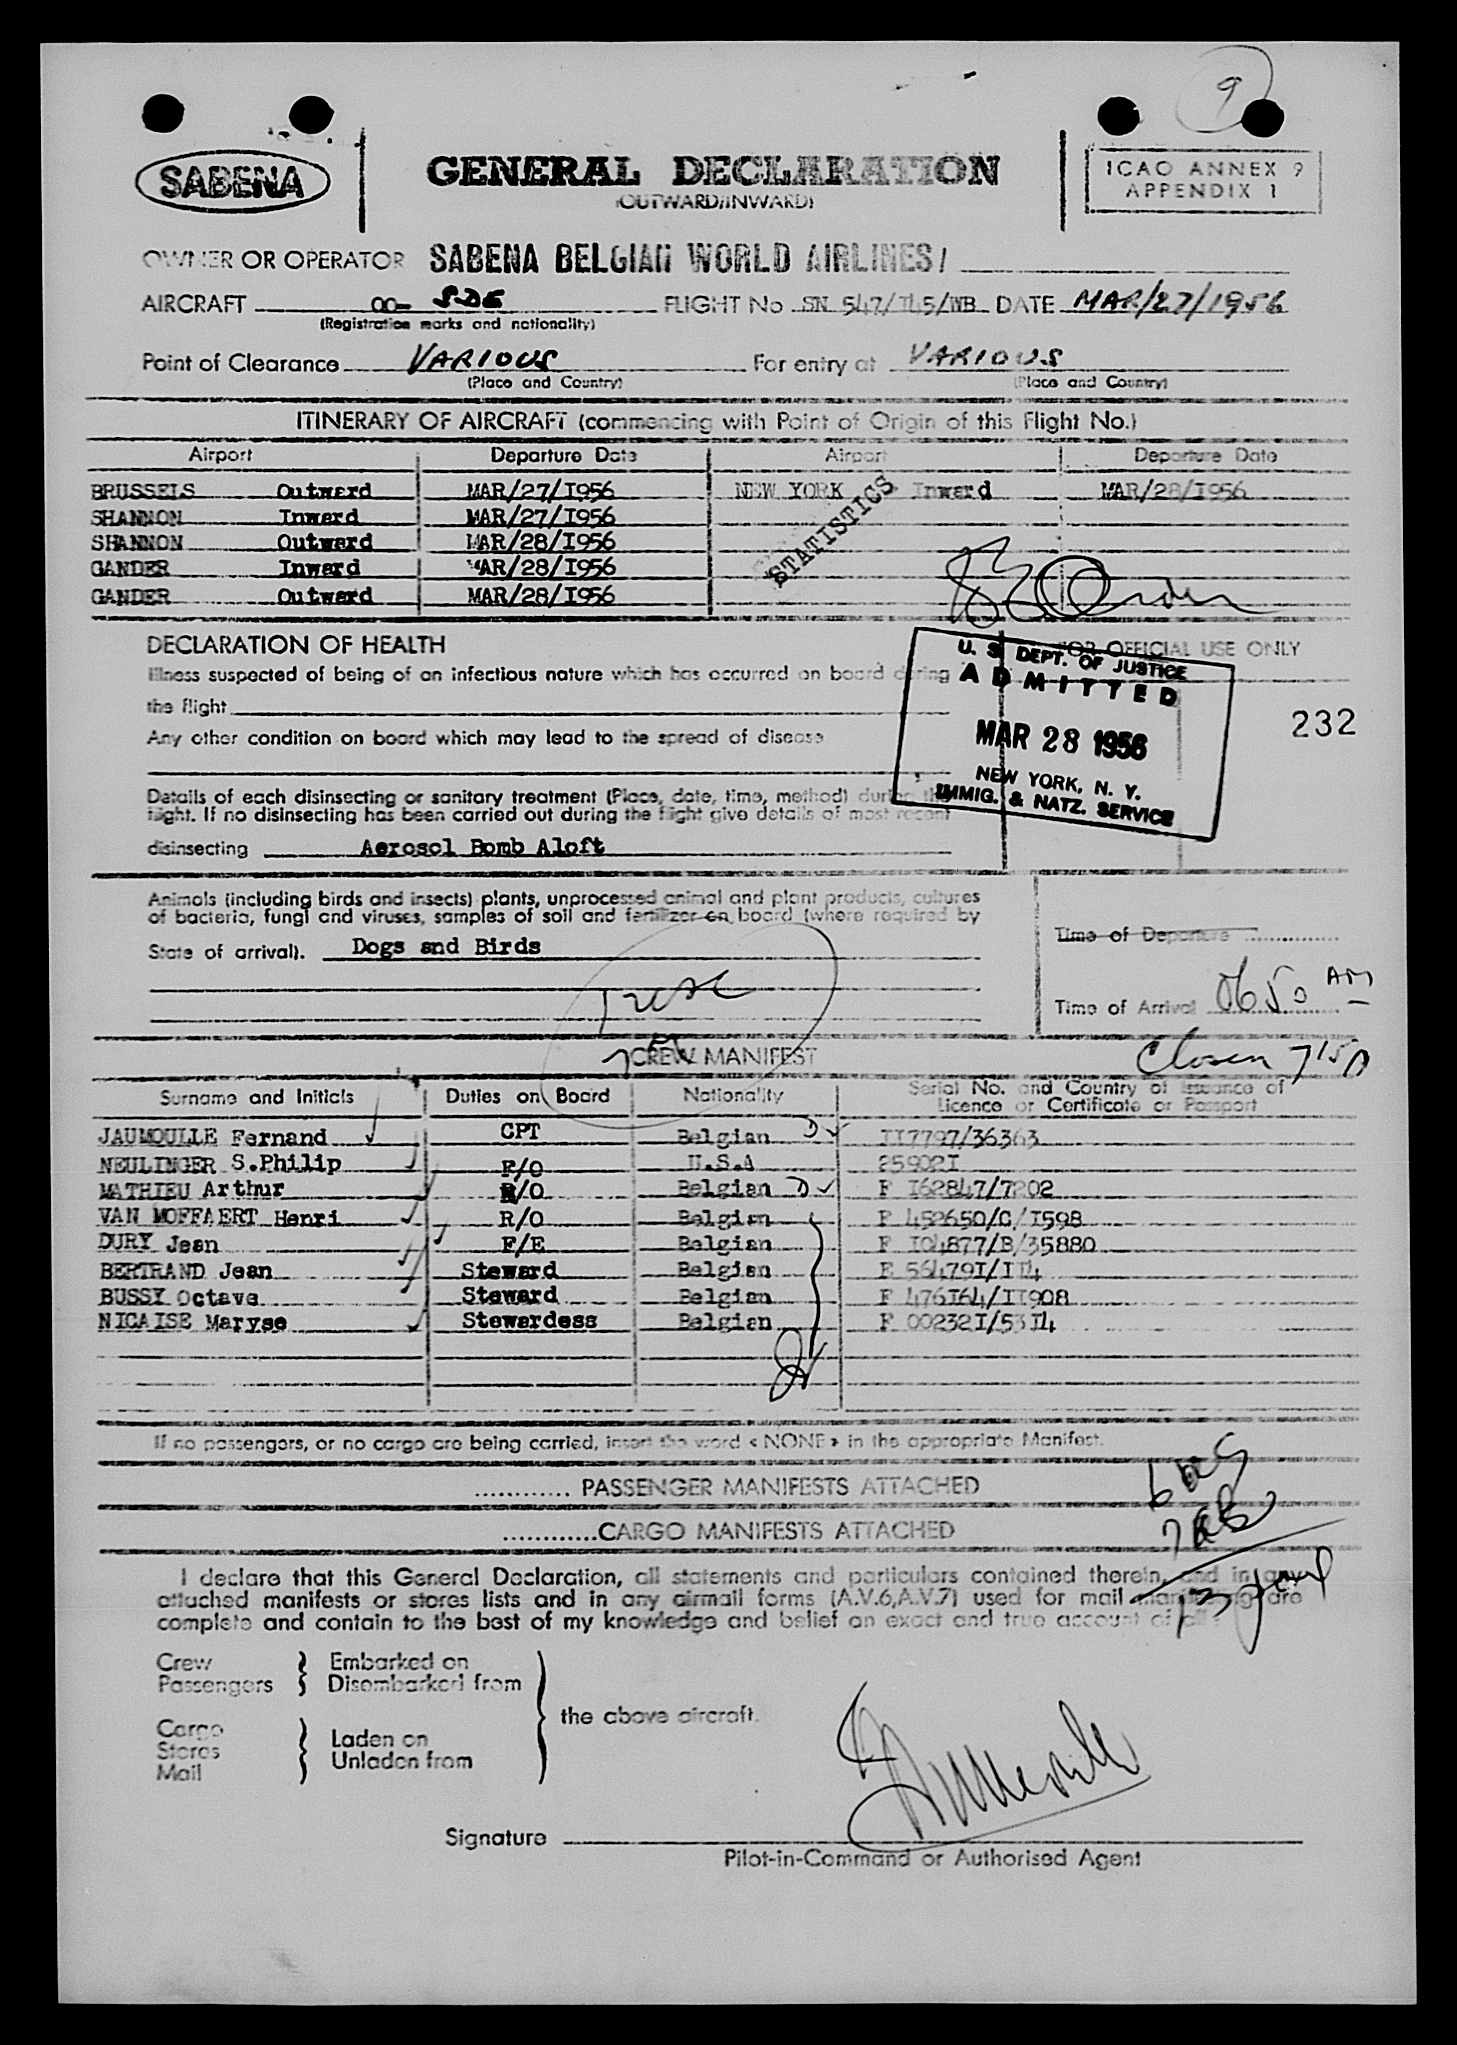 9
SABENA
GENERAL DECLARATION
(OUTWARD/INWARD)
ICAO ANNEX 9
APPENDIX 1
OWNER OR OPERATOR SABENA BELGIAN WORLD AIRLINES/
AIRCRAFT OO- SDE FLIGHT No SN 547/T45/WB DATE MAR/27/1956
(Registration marks and nationality)
Point of Clearance VARIOUS For entry at VARIOUS
(Place and Country) (Place and Country)
ITINERARY OF AIRCRAFT (commencing with Point of Origin of this Flight No.)
Airport Departure Date Airport Departure Date
BRUSSELS Outward MAR/27/I956 NEW YORK Inward MAR/28/I956
SHANNON Inward MAR/27/I956
SHANNON Outward MAR/28/I956
GANDER Inward MAR/28/I956
GANDER Outward MAR/28/I956
STATISTICS
DECLARATION OF HEALTH
FOR OFFICIAL USE ONLY
Illness suspected of being of an infectious nature which has occurred on board during
the flight
Any other condition on board which may lead to the spread of disease
U. S. DEPT. OF JUSTICE
ADMITTED
MAR 28 1956
NEW YORK, N. Y.
IMMIG. & NATZ. SERVICE
232
Details of each disinsecting or sanitary treatment (Place, date, time, method) during the
flight. If no disinsecting has been carried out during the flight give details of most recent
disinsecting Aerosol Bomb Aloft
Animals (including birds and insects) plants, unprocessed animal and plant products, cultures
of bacteria, fungi and viruses, samples of soil and fertilizer on board (where required by
State of arrival). Dogs and Birds
Time of Departure
Time of Arrival 0650 AM
CREW MANIFEST
Surname and Initials Duties on Board Nationality Serial No. and Country of Issuance of
Licence or Certificate or Passport
JAUMOULLE Fernand CPT Belgian D II7797/36363
NEULINGER S.Philip F/O U.S.A 25902I
MATHIEU Arthur R/O Belgian D F I62847/7202
VAN MOFFAERT Henri R/O Belgian F 452650/C/I598
DURY Jean F/E Belgian F I04877/B/35880
BERTRAND Jean Steward Belgian F 56479I/II4
BUSSY Octave Steward Belgian F 476I64/II908
NICAISE Maryse Stewardess Belgian F 00232I/53I4
If no passengers, or no cargo are being carried, insert the word « NONE » in the appropriate Manifest.
PASSENGER MANIFESTS ATTACHED
CARGO MANIFESTS ATTACHED
I declare that this General Declaration, all statements and particulars contained therein, and in any
attached manifests or stores lists and in any airmail forms (A.V.6,A.V.7) used for mail manifesting are
complete and contain to the best of my knowledge and belief an exact and true account of all:
Crew Embarked on
Passengers Disembarked from
the above aircraft.
Cargo
Stores Laden on
Mail Unladen from
Signature
Pilot-in-Command or Authorised Agent